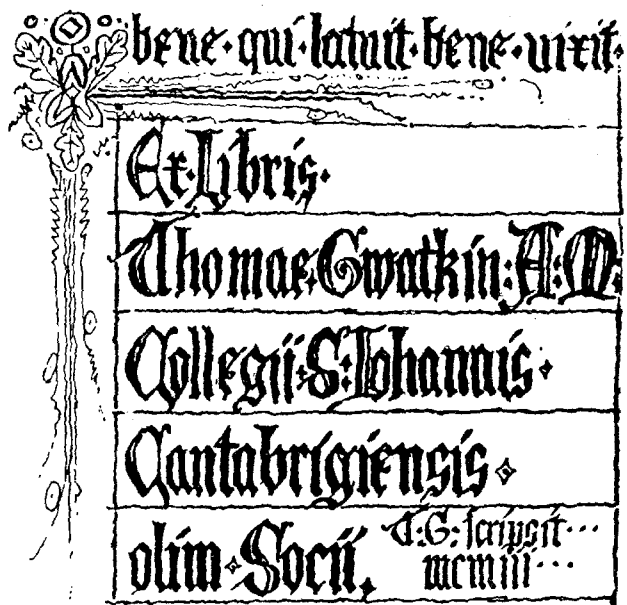 bene·qui·latuit·bene·uixit·
Ex·Libris·
Thomae·Gwatkin:A:M·
Collegii·S:Iohannis·
Cantabrigiensis
olim·Socii.
T:G:scripsit···
mcmiii···